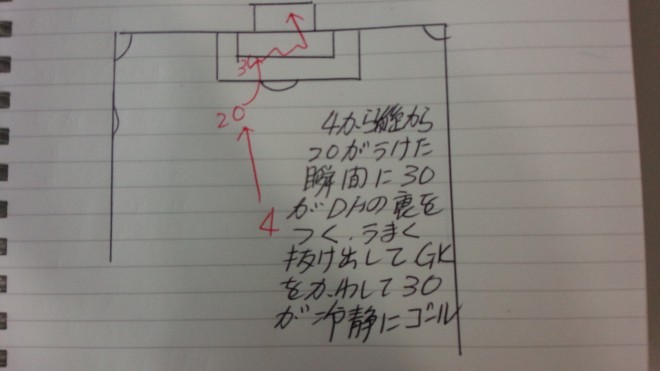 30
20
4
4から縦から
20がうけた
瞬間に30
がDFの裏を
つく.うまく
抜け出してGK
をかわして30
が冷静にゴール